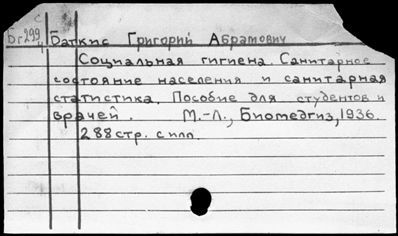 С
Бг299 Баткис Григорий Абрамович
ч
Социальная гигиена. Санитарное
состояние населения и санитарная
статистика. Пособие для студентов и
врачей. М.-Л., Биомедгиз, 1936.
288 стр. с илл.